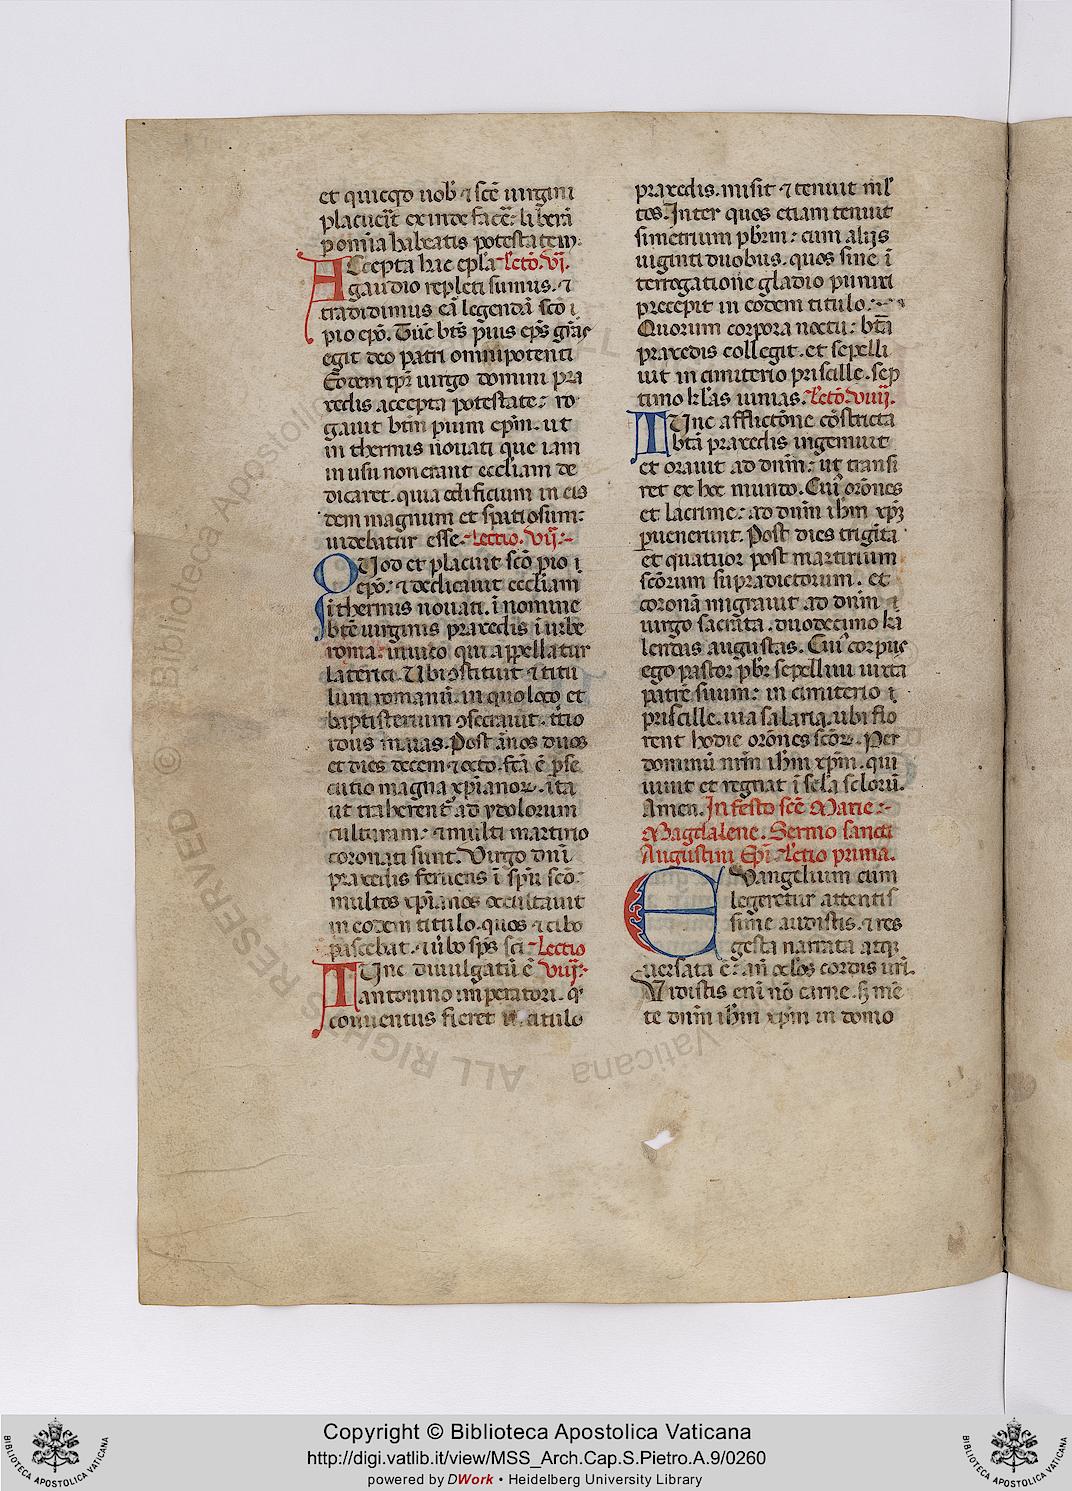 et quicqd uob̄ ⁊ scē uirgini
placuerīt exinde facē: liberā
p omīa habeatis potestatem:
Accepta hac epl̄a Lectō. vj.
gaudio repleti sumus. ⁊
tradidimus eā legendā scō i
pio epō. Tūc bt̄s pius ep̄s grās
egit deo patri omnipotenti
Eodem tp̄r uirgo domini pra
xedis accepta potestate: ro
gauit btm̄ pium epm̄. ut
in thermis nouati que iam
in usu non erant eccliam de
dicaret. quia edificium in eis
dem magnum et spatiosum:
uidebatur esse. Lectio. vij:-
Quod et placuit scō pio i
epō. ⁊ dedicauit eccliam
ī thermis nouati. ī nomine
btē uirginis praxedis ī urbe
roma: in uico qui appellatur
laterici. Ubi ɔstituit ⁊ titu
lum romanū. in quo loco et
baptisterium ɔsecrauit. tītio
idus maias. Post ānos duos
et dies decem ⁊ octo. fcā ē p̄se
cutio magna xp̄ianoꝝ. ita
ut traherent᷑ ad ydolorum
culturam: ⁊ multi martirio
coronati sunt. Virgo dnī
praxedis feruens ī spū scō:
multos xp̄ianos occultauit
in eodem titulo. quos ⁊ cibo
pascebat. ⁊ uībo sp̄s sci Lectio
Tunc diuulgatū ē viij:-
antonino imperatori. qꝫ
conuentus fieret titulo
praxedis. misit ⁊ tenuit ml̄
tos. Inter quos etiam tenuit
simetrium pb̄rm: cum alijs
uiginti duobus. quos sine ī
terrogatione gladio puniri
precepit in eodem titulo:
Quorum corpora noctu: btā
praxedis collegit. et sepelli
uit in cimiterio priscille. sep
timo kl̄as iunias. Lectō. viiij.
Tunc afflictōne cōstricta
btā praxedis ingemuit
et orauit ad dnm̄: ut transi
ret ex hoc mundo. Cui᷒ orōnes
et lacrime: ad dnm̄ ihm̄ xp̄ꝫ
puenerunt. Post dies trigīta
et quatuor post martirium
scōrum supradictorum. et
coronā migrauit ad dnm̄ i
uirgo sacrata. duodecimo ka
lendas augustas. Cui᷒ corpus
ego pastor pb̄r sepelliui iuxta
patrē suum: in cimiterio i
priscille. uia salaria. ubi flo
rent hodie orōnes scōꝝ. Per
dominū nrm̄ ihm̄ xp̄m. qui
uiuit et regnat ī sel̄a sclorū.
Amen. In festo scē Marie:-
Magdalene. Sermo sancti
Augustini Epī. Lectio prima.
Euangelium cum
legeretur attentis
sime audistis. ⁊ res
gesta narrata atqꝫ
uersata ē: an̄ oclos cordis urī.
Vidistis enī nō carne. sꝫ mē
te dnm̄ ihm̄ xp̄m in domo
Copyright © Biblioteca Apostolica Vaticana
http://digi.vatlib.it/view/MSS_Arch.Cap.S.Pietro.A.9/0260
powered by DWork • Heidelberg University Library
BIBLIOTECA APOSTOLICA VATICANA
BIBLIOTECA APOSTOLICA VATICANA